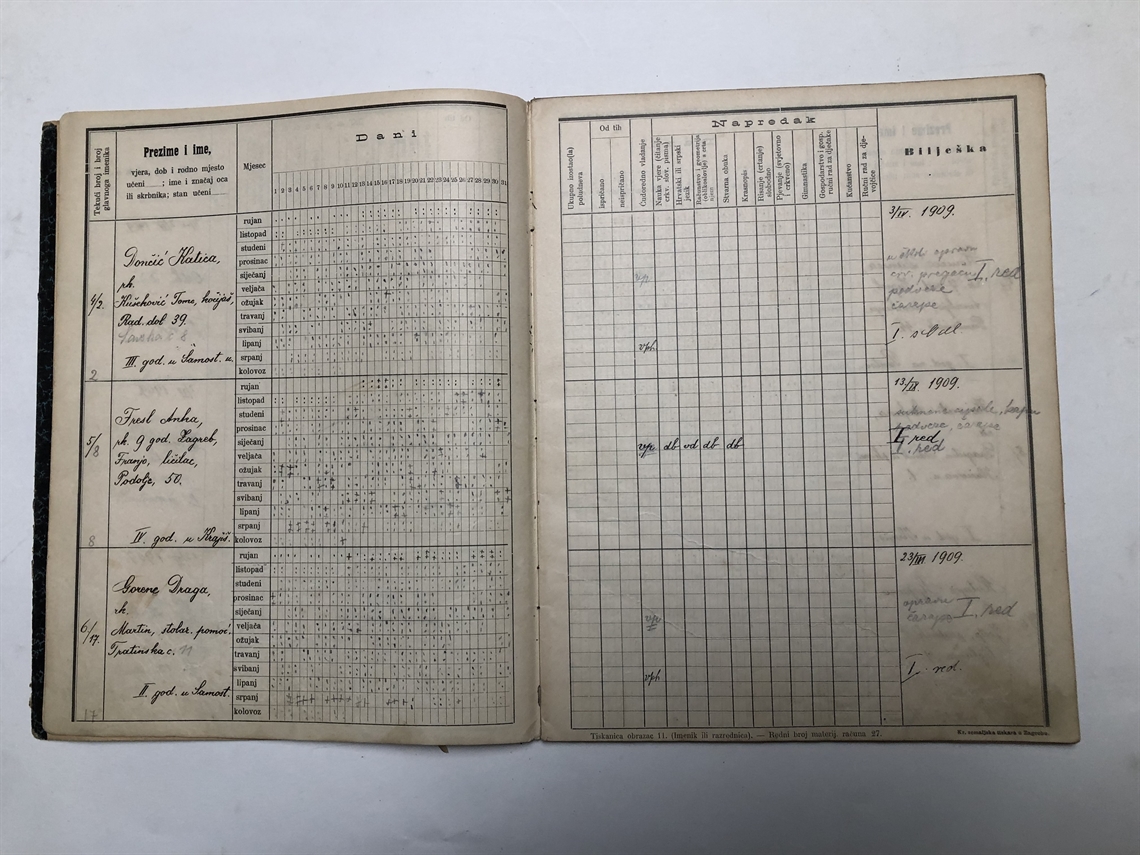 Tekući broj i broj
glavnoga imenika
Prezime i ime,
vjera, dob i rodno mjesto
učeni ; ime i značaj oca
ili skrbnika; stan učeni
Mjesec
Dani
1 2 3 4 5 6 7 8 9 10 11 12 13 14 15 16 17 18 19 20 21 22 23 24 25 26 27 28 29 30 31
4/2
Dončić Katica,
rk.
Tomo, kočijaš,
Rad. dol 39.
III. god. u Samost. u.
2
rujan
listopad
studeni
prosinac
siječanj
veljača
ožujak
travanj
svibanj
lipanj
srpanj
kolovoz
5/8
Fresl Anka,
rk. 9 god. Zagreb,
Franjo, ličilac,
Podolje, 50.
IV. god. u Krajiš.
8
rujan
listopad
studeni
prosinac
siječanj
veljača
ožujak
travanj
svibanj
lipanj
srpanj
kolovoz
6/17.
Gorenc Draga,
rk.
Martin, stolar. pomoć.
Tratinska c.
II. god. u Samost.
17
rujan
listopad
studeni
prosinac
siječanj
veljača
ožujak
travanj
svibanj
lipanj
srpanj
kolovoz
Napredak
Ukupno izostao(la)
poludneva
Od tih
ispričano
neispričano
Ćudoredno vladanje
Nauka vjere (čitanje
crkv. slov. pisma)
Hrvatski ili srpski
jezik
Računstvo i geometrija
(oblikoslovlje) s crta-
njem
Stvarna obuka
Krasnopis
Risanje (crtanje)
slobodno
Pjevanje (svjetovno
i crkveno)
Gimnastika
Gospodarstvo i gosp.
ručni rad za dječake
Kućanstvo
Ručni rad za dje-
vojčice
Bilješka
3/IV. 1909.
I. red
podveze
čarape
I.
13/IX. 1909.
I. red
I. red
db vd db db
23/III 1909.
I. red
I. red.
Tiskanica obrazac 11. (Imenik ili razrednica). — Redni broj materij. računa 27.
Kr. zemaljska tiskara u Zagrebu.